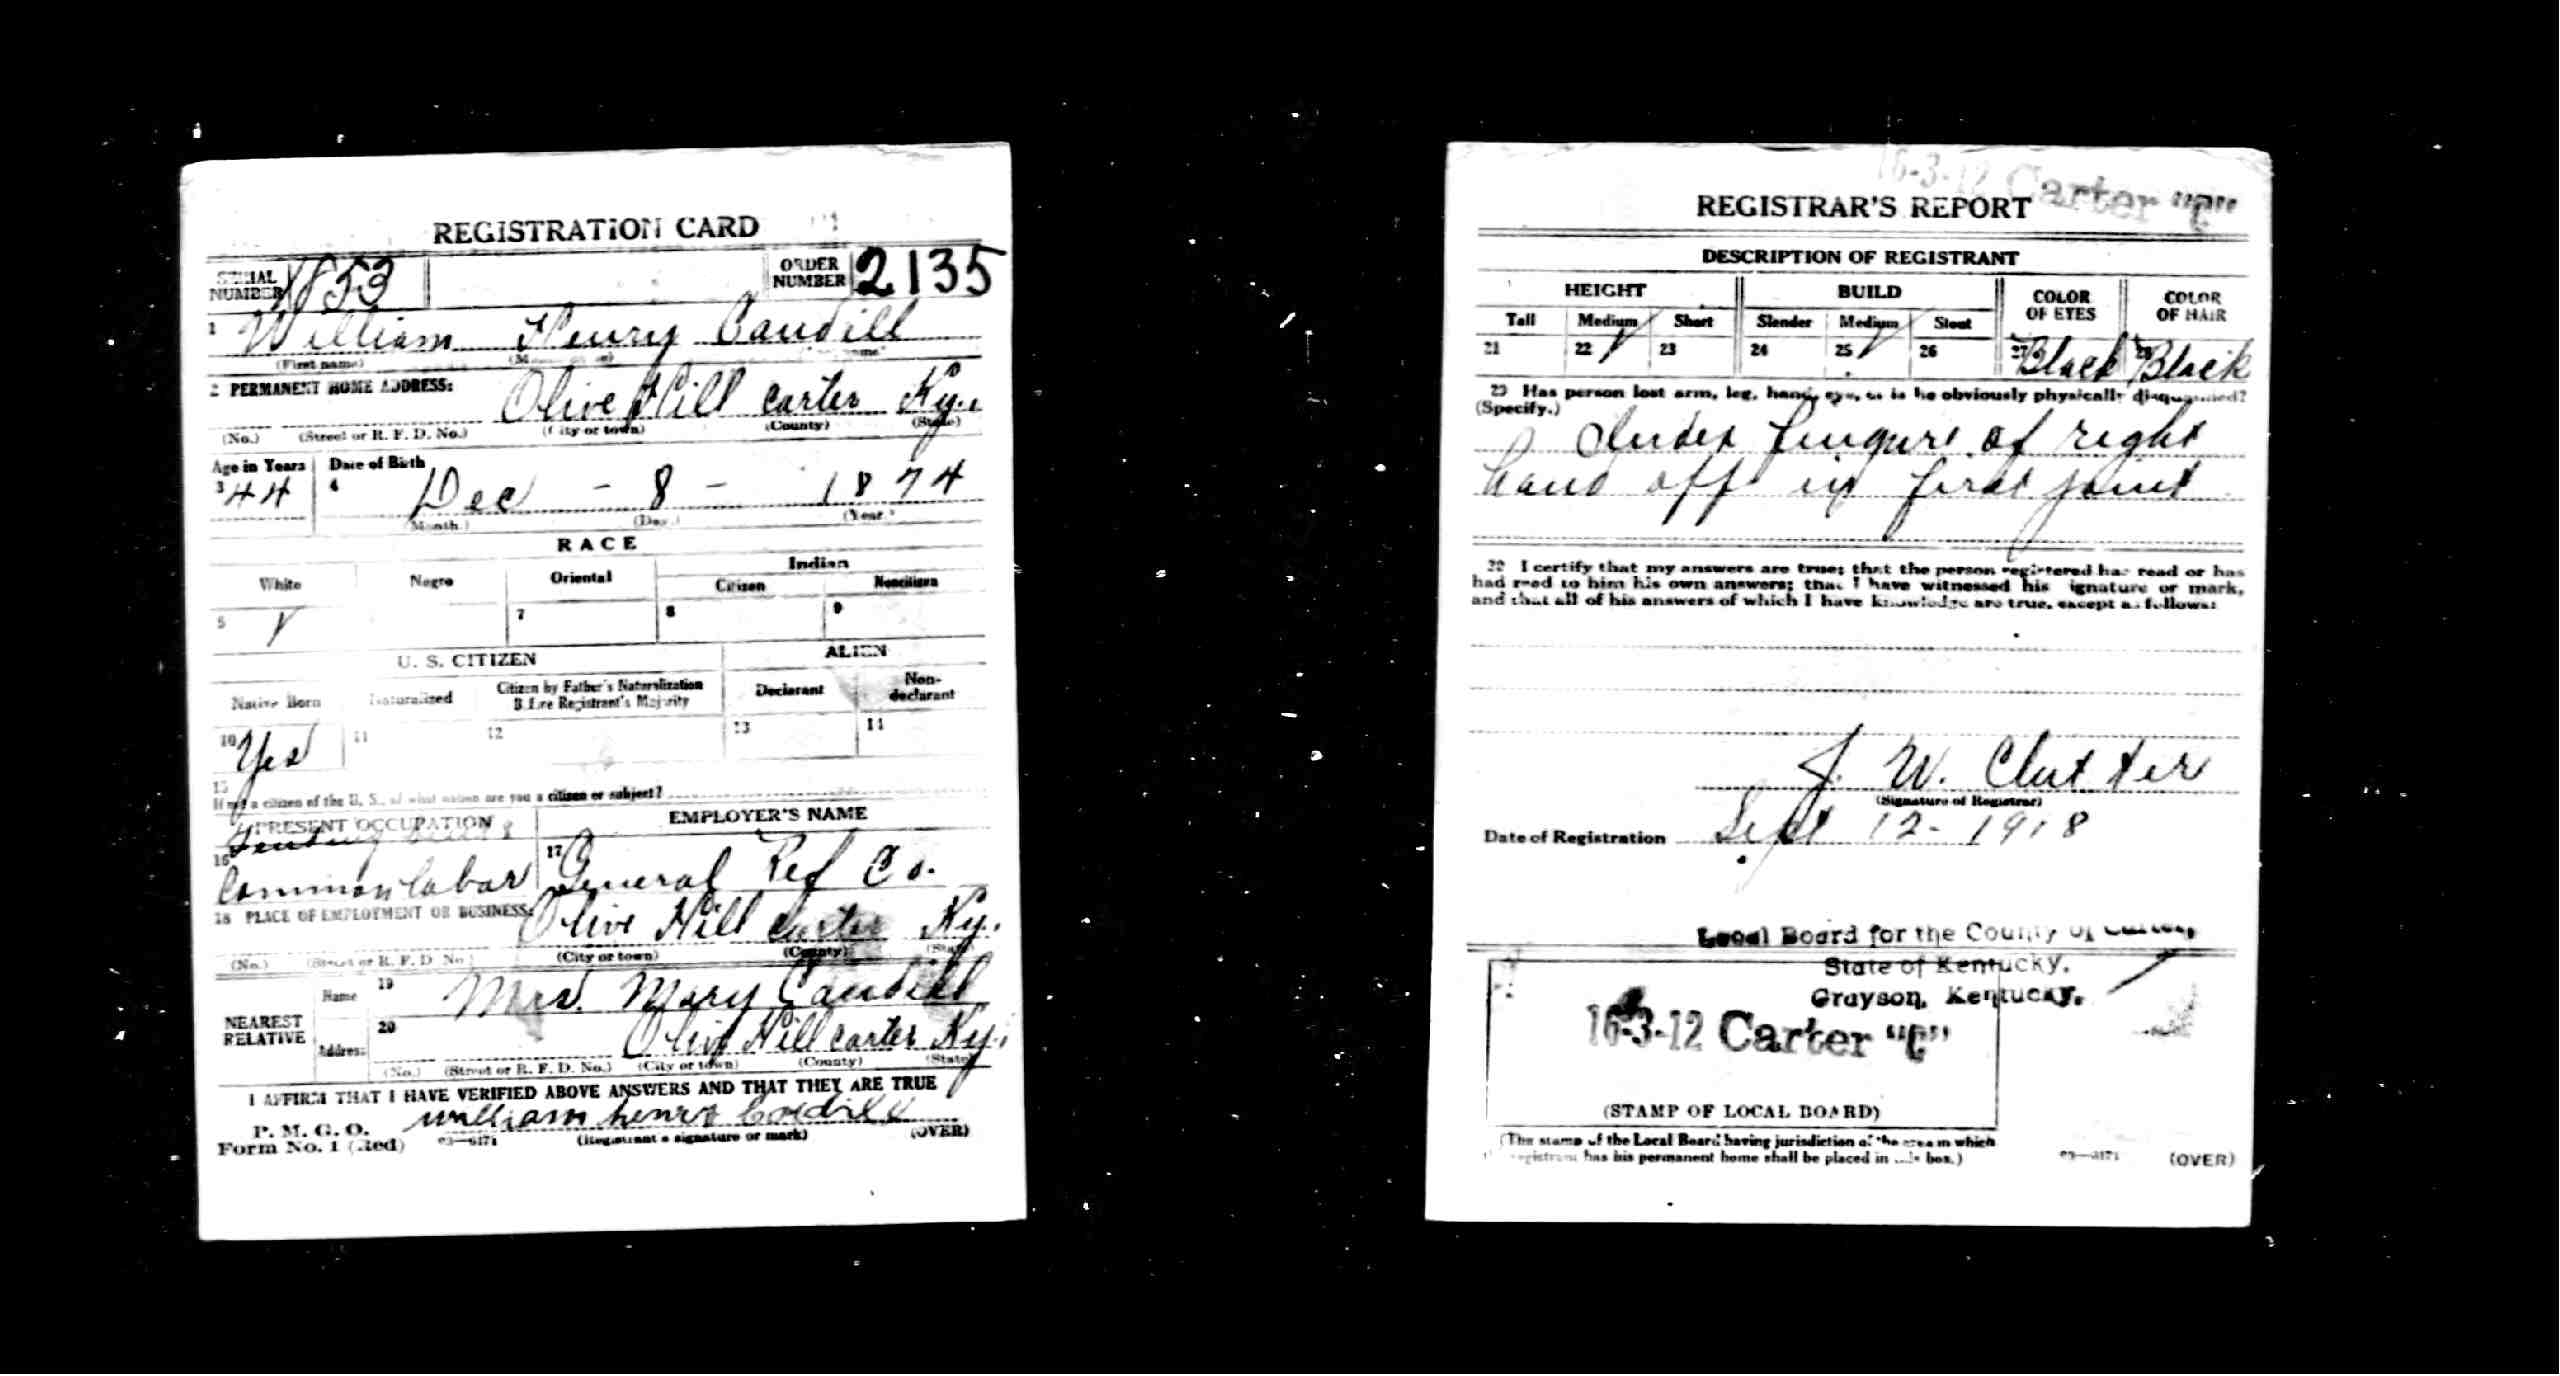 REGISTRATION CARD
SERIAL NUMBER 1853 ORDER NUMBER 2135
1 William Henry Caudill
(First name)
2 PERMANENT HOME ADDRESS:
Olive Hill Carter Ky.
(No.) (Street or R. F. D. No.) (City or town) (County) (State)
Age in Years Date of Birth
3 44 4 Dec - 8 - 1874
(Month.) (Day.) (Year.)
RACE
White Negro Oriental Indian
Citizen Noncitizen
5 7 8 9
U. S. CITIZEN ALIEN
Native Born Naturalized Citizen by Father's Naturalization Before Registrant's Majority Declarant Non-declarant
10 Yes 11 12 13 14
15
If not a citizen of the U. S., of what nation are you a citizen or subject?
PRESENT OCCUPATION EMPLOYER'S NAME
16 Common labor 17 General Ref Co.
18 PLACE OF EMPLOYMENT OR BUSINESS:
Olive Hill Carter Ky.
(No.) (Street or R. F. D. No.) (City or town) (County) (State)
NEAREST RELATIVE
Name 19 Mrs. Mary Caudill
Address 20 Olive Hill Carter Ky.
(No.) (Street or R. F. D. No.) (City or town) (County) (State)
I AFFIRM THAT I HAVE VERIFIED ABOVE ANSWERS AND THAT THEY ARE TRUE
P. M. G. O.
Form No. 1 (Red) 03—6171 (Registrant's signature or mark) (OVER)
william henry
16-3-12 Carter "C"
REGISTRAR'S REPORT
DESCRIPTION OF REGISTRANT
HEIGHT BUILD COLOR OF EYES COLOR OF HAIR
Tall Medium Short Slender Medium Stout
21 22 23 24 25 26 27 Black 28 Black
29 Has person lost arm, leg, hand, eye, or is he obviously physically disqualified?
(Specify.)
Index fingure of right
hand off in first joint
30 I certify that my answers are true; that the person registered has read or has
had read to him his own answers; that I have witnessed his signature or mark,
and that all of his answers of which I have knowledge are true, except as follows:
J. W. Clutter
(Signature of Registrar)
Date of Registration Sept 12 - 1918
Local Board for the County of Carter,
State of Kentucky,
Grayson, Kentucky.
16-3-12 Carter "C"
(STAMP OF LOCAL BOARD)
(The stamp of the Local Board having jurisdiction of the area in which
the registrant has his permanent home shall be placed in this box.)
03—6171 (OVER)